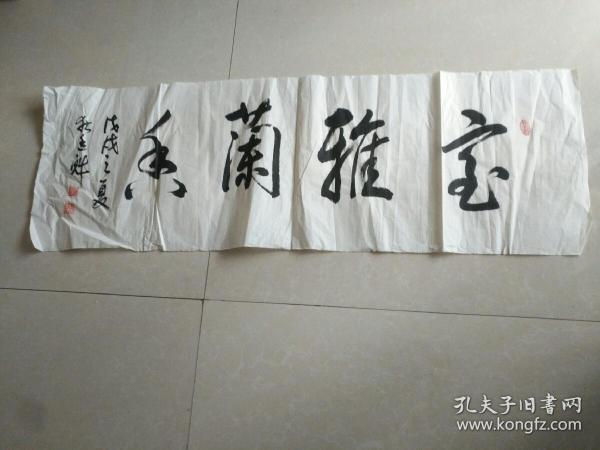 室雅蘭香
戊戌之夏
孔夫子旧書网
www.kongfz.com